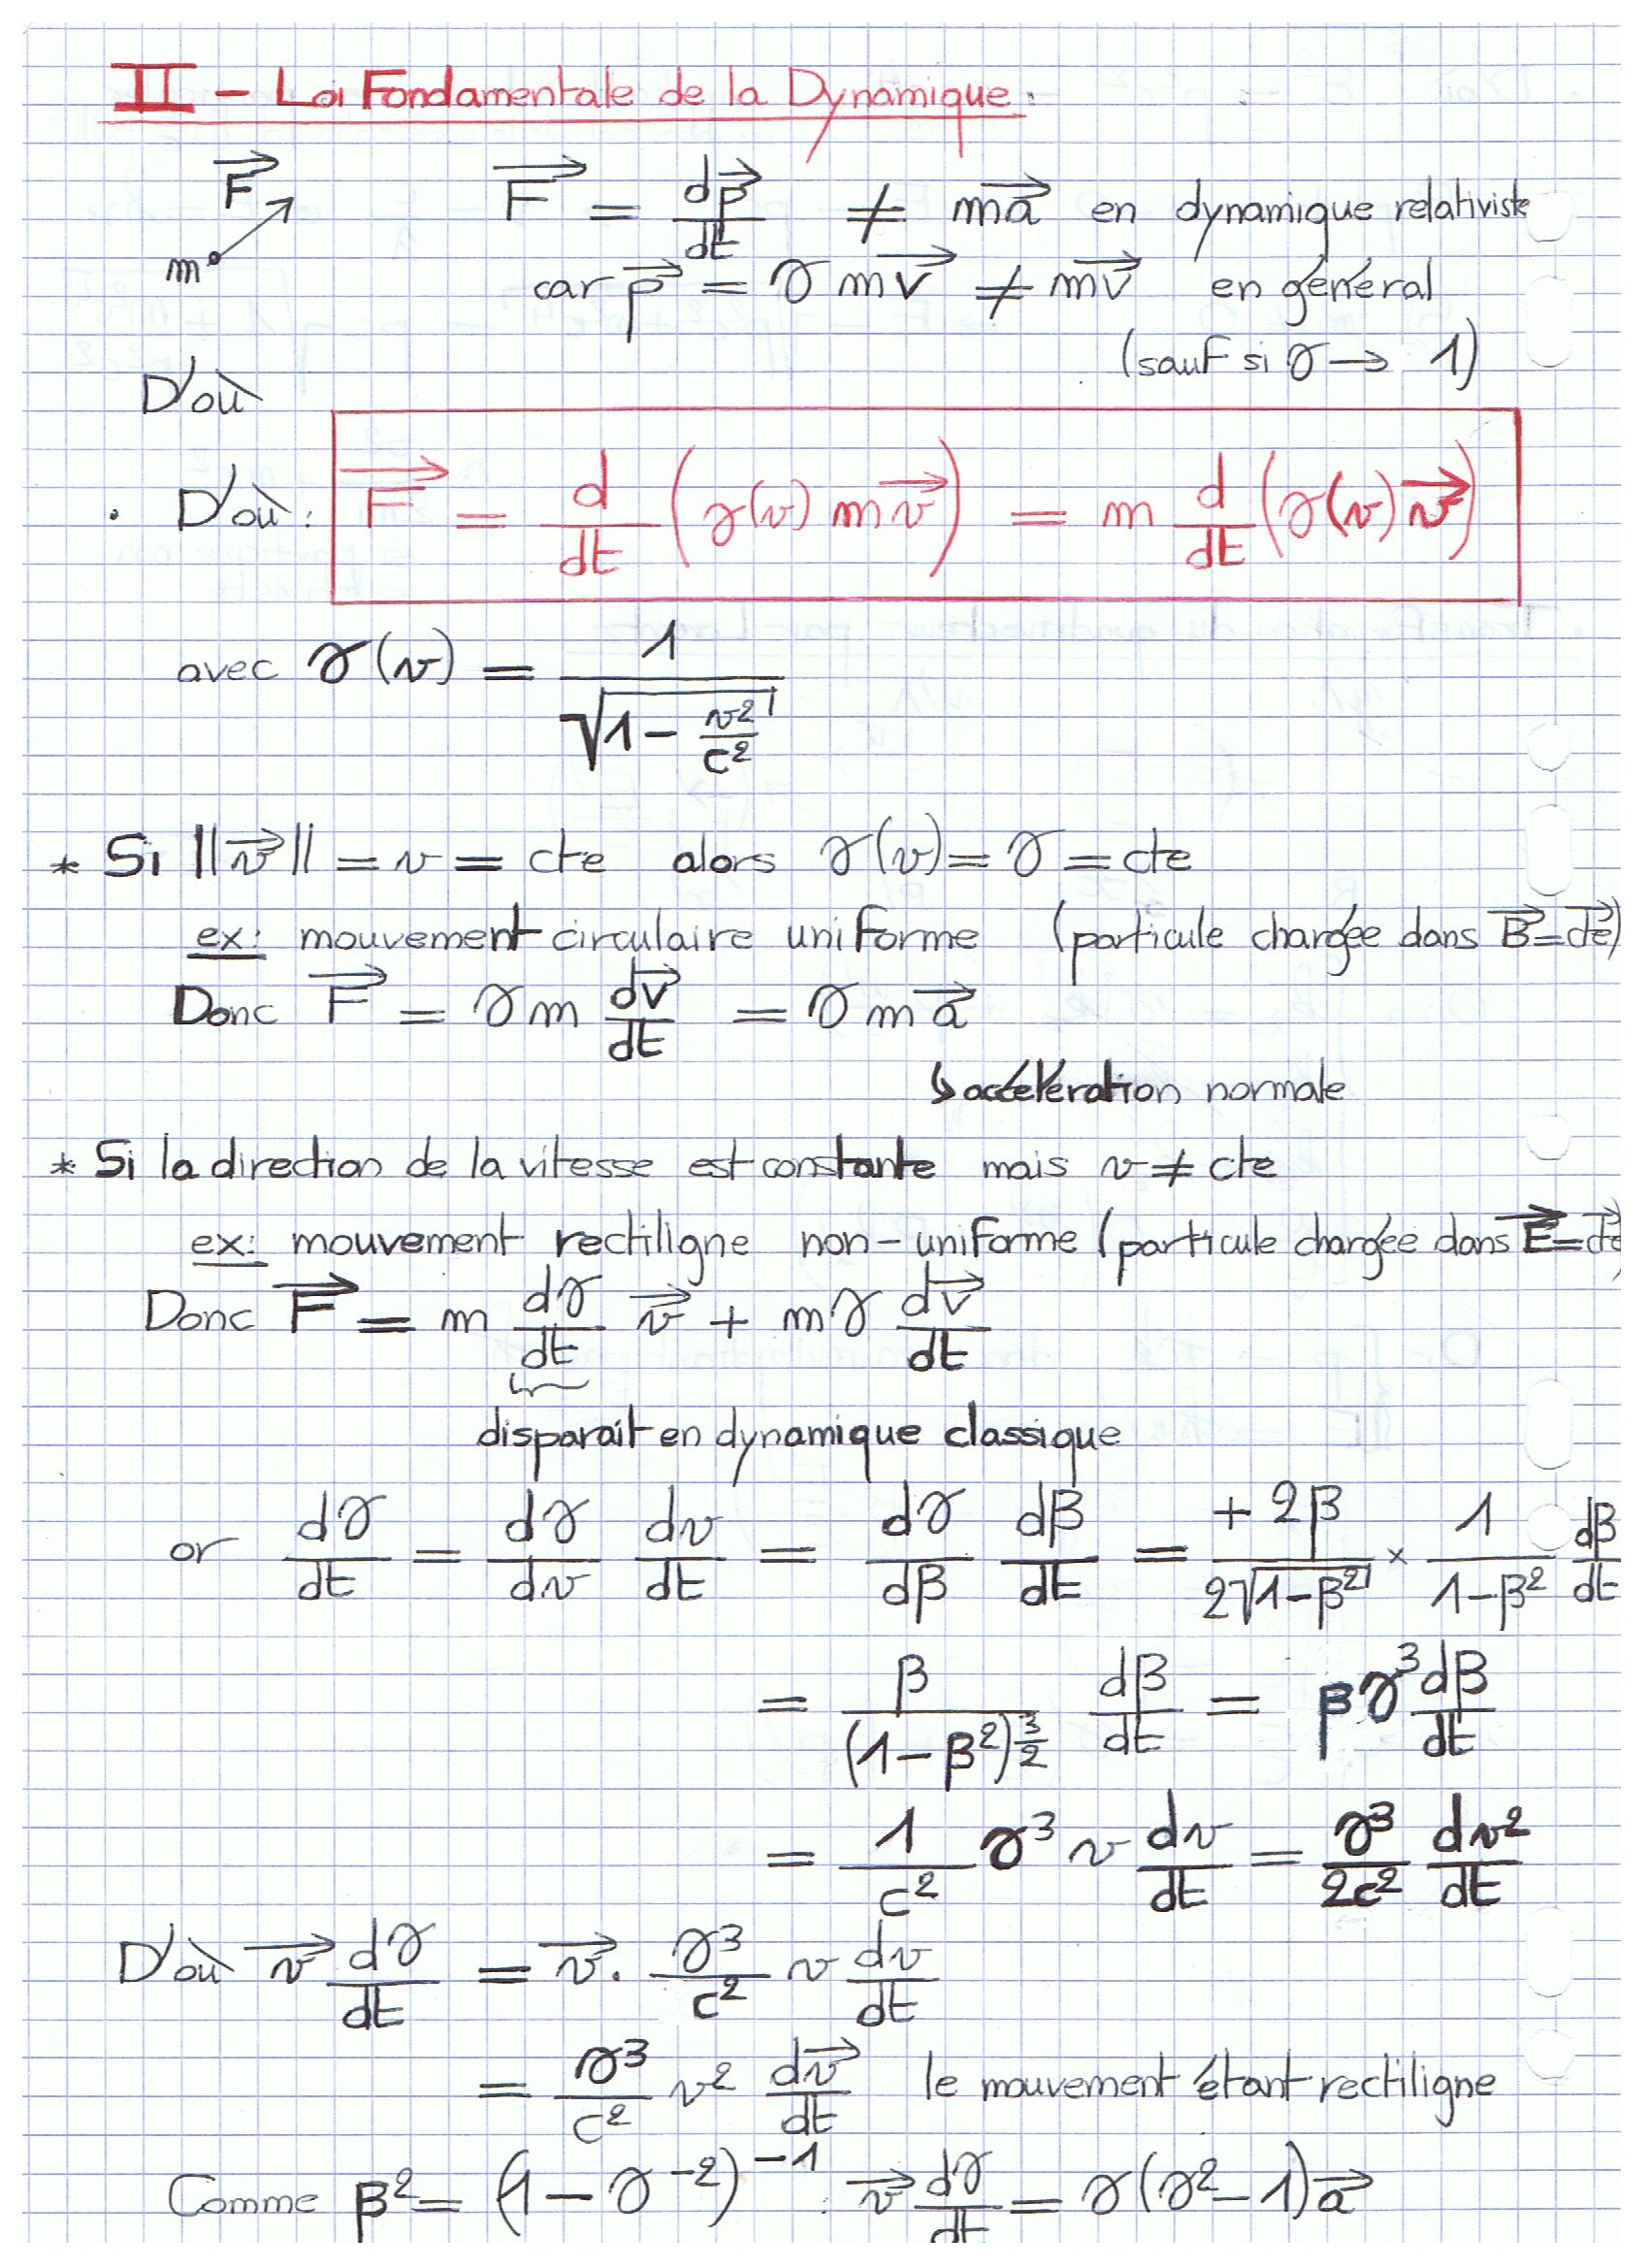 II - Loi Fondamentale de la Dynamique:
F⃗
m
F⃗ = dp⃗/dt ≠ ma⃗ en dynamique relativiste
car p⃗ = γ m v⃗ ≠ m v⃗ en général
(sauf si γ → 1)
D'où
. D'où: F⃗ = d/dt (γ(v) m v⃗) = m d/dt (γ(v) v⃗)
avec γ(v) = 1/√(1 - v²/c²)
* Si ||v⃗|| = v = cte alors γ(v) = γ = cte
ex: mouvement circulaire uniforme (particule chargée dans B⃗ = cte⃗)
Donc F⃗ = γ m dv⃗/dt = γ m a⃗
↳ accélération normale
* Si la direction de la vitesse est constante mais v ≠ cte
ex: mouvement rectiligne non-uniforme (particule chargée dans E⃗ = cte⃗)
Donc F⃗ = m dγ/dt v⃗ + m γ dv⃗/dt
disparaît en dynamique classique
or dγ/dt = dγ/dv dv/dt = dγ/dβ dβ/dt = +2β/(2√(1-β²)) × 1/(1-β²) dβ/dt
= β/(1-β²)^(3/2) dβ/dt = βγ³ dβ/dt
= 1/c² γ³ v dv/dt = γ³/2c² dv²/dt
D'où v⃗ dγ/dt = v⃗ . γ³/c² v dv/dt
= γ³/c² v² dv⃗/dt le mouvement étant rectiligne
Comme β² = (1 - γ⁻²)⁻¹ : v⃗ dγ/dt = γ(γ² - 1)a⃗